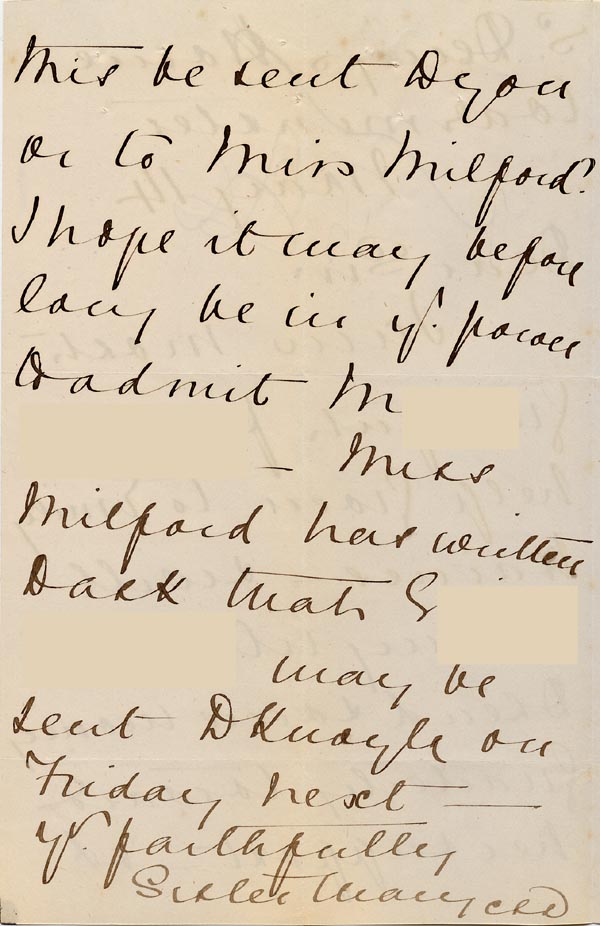 this be sent to you
or to Miss Milford?
I hope it may before
long be in yr. power
to admit M
— Miss
Milford has written
to ask that G
may be
sent to Knoyle on
Friday next —
yr. faithfully
Sister Mary